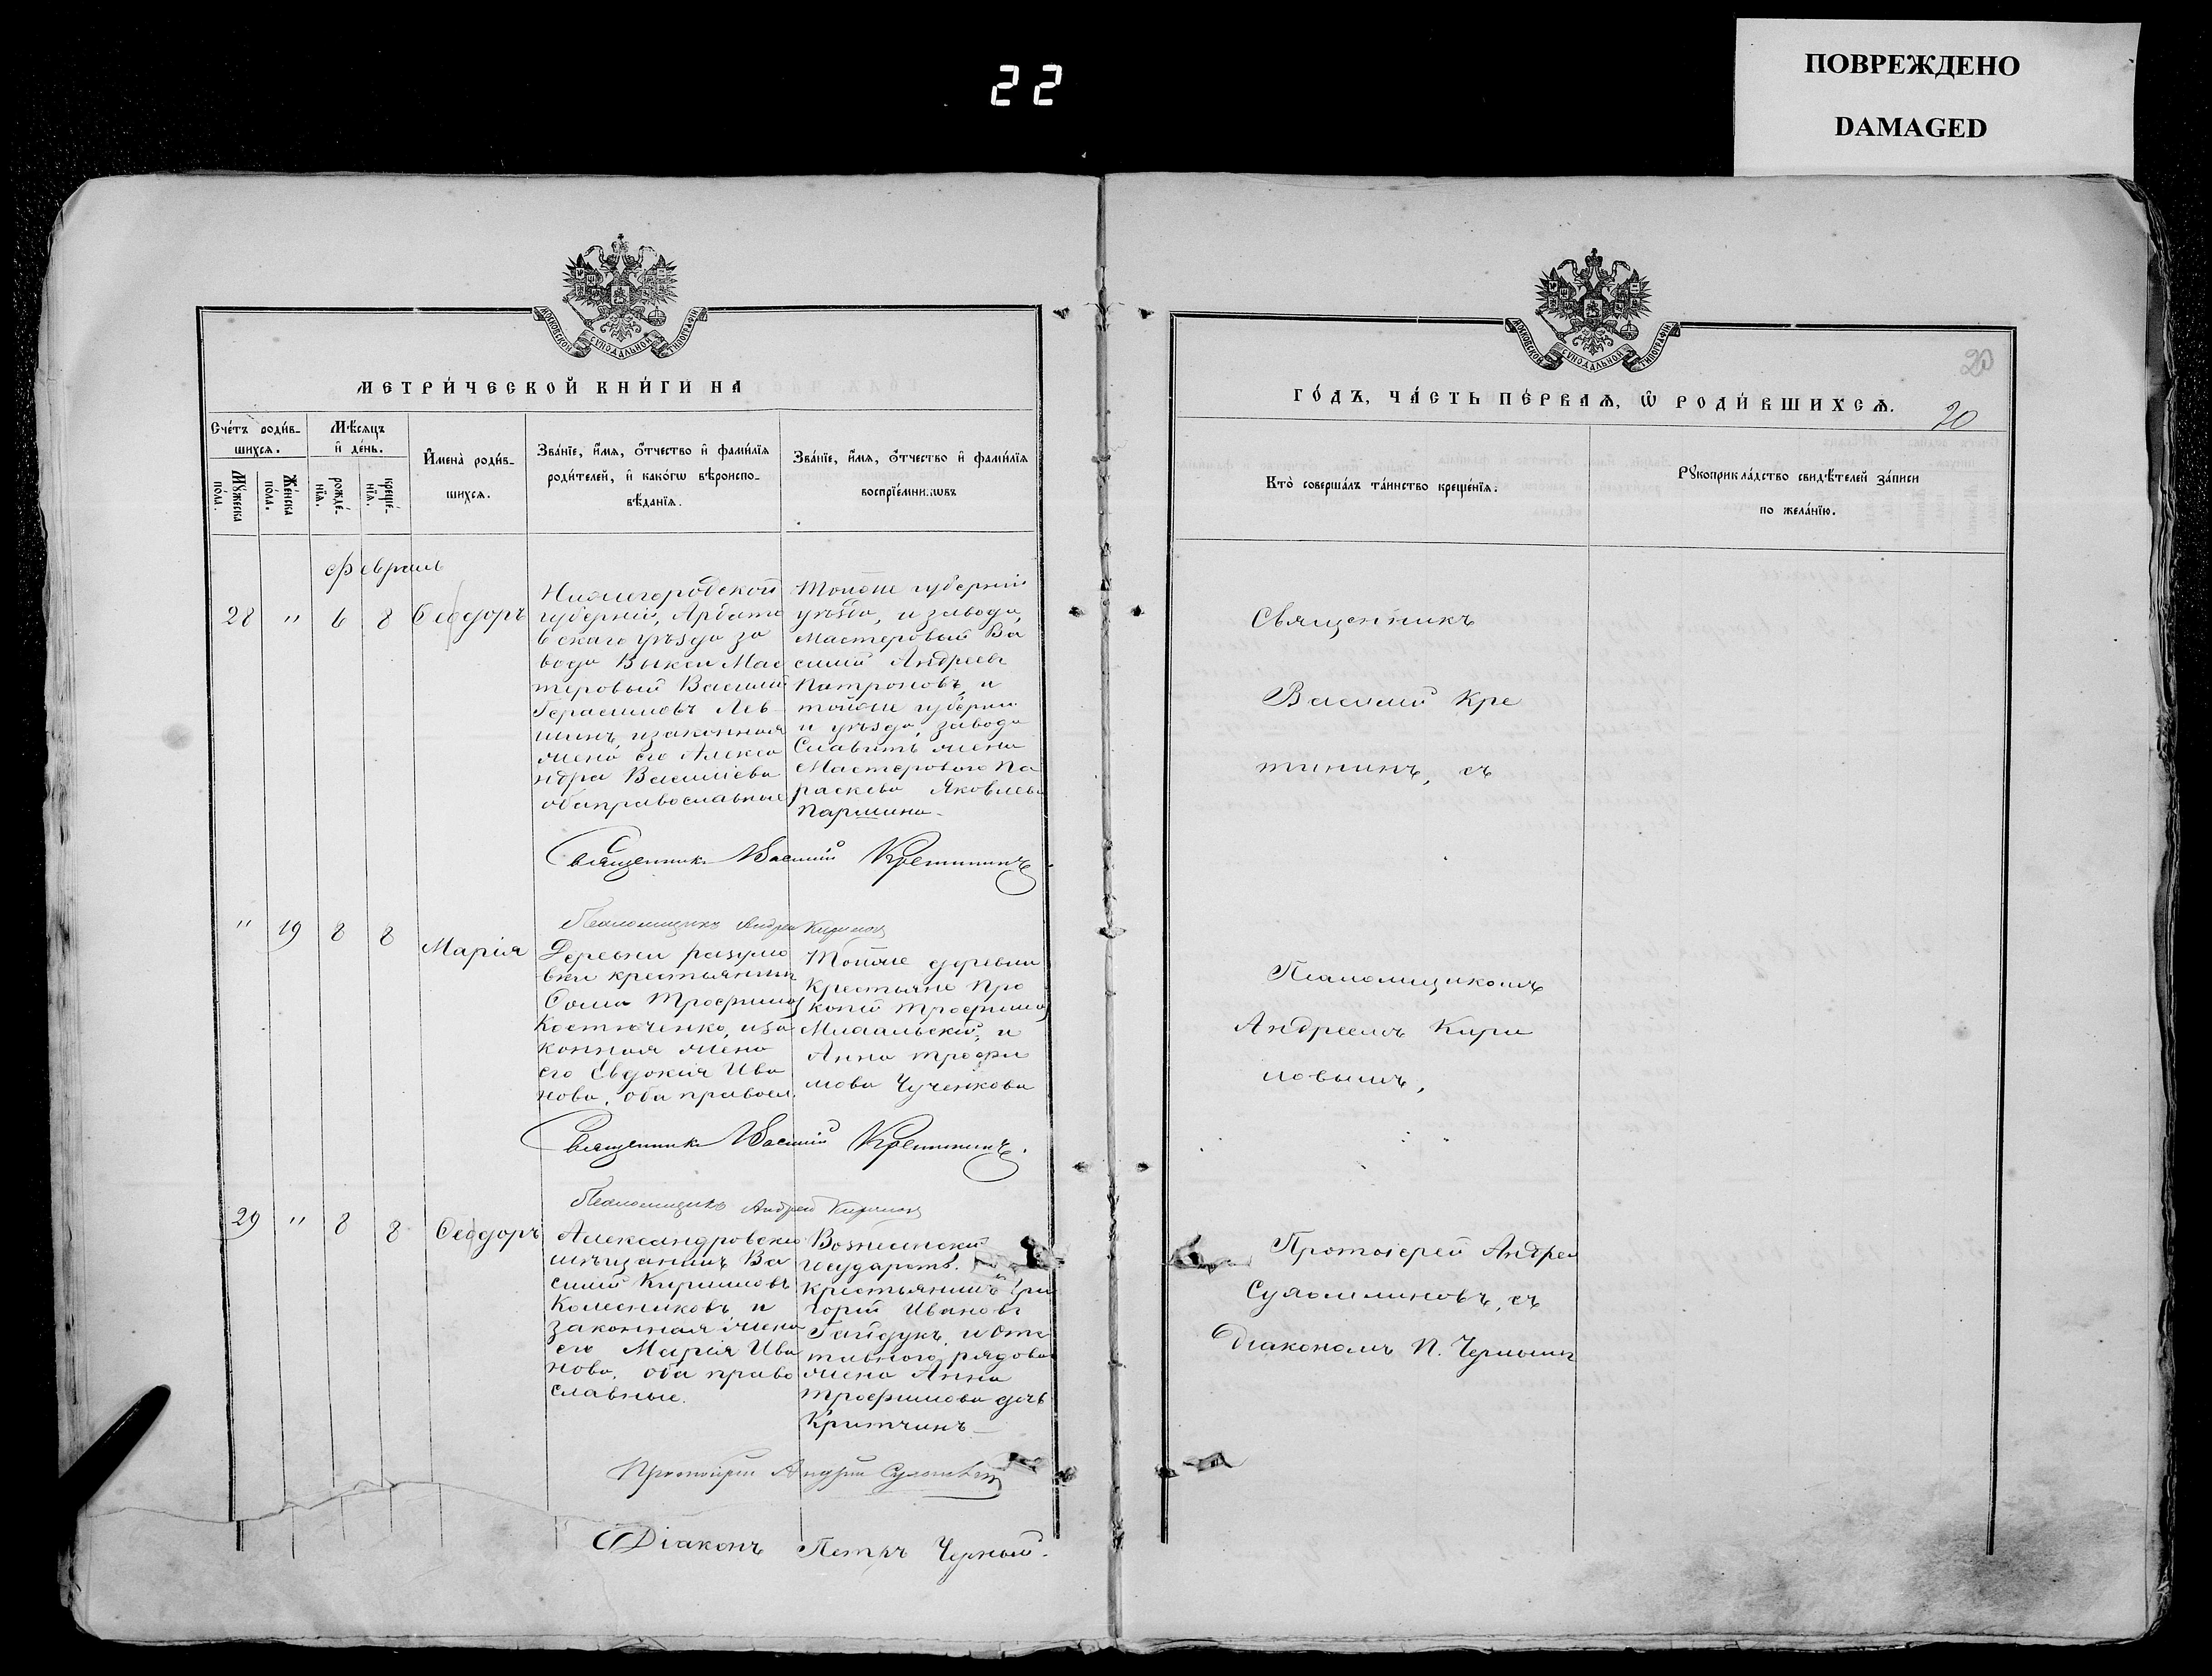 22
ПОВРЕЖДЕНО
DAMAGED
МОСКОВСКОЙ СѴНОДАЛЬНОЙ ТИПОГРАФІИ
МЕТРИ́ЧЕСКОЙ КНИ́ГИ НА
Сче́тъ роди́в-
шихсѧ.
Мꙋ́жеска
по́ла.
Же́нска
по́ла.
Мѣ́сѧцъ
и҆ де́нь.
рожде́-
нїѧ.
креще́-
нїѧ.
И҆мена̀ роди́в-
шихсѧ.
Зва́нїе, и҆́мѧ, ѻ҆́тчество и҆ фами́лїѧ
роди́телей, и҆ како́гѡ вѣроиспо-
вѣ́данїѧ.
Зва́нїе, и҆́мѧ, ѻ҆́тчество и҆ фами́лїѧ
воспрїе́мникѡвъ
Февраль
28 " 6 8 Ѳеодоръ
Нижегородской
губерніи, Ардато
вскаго уѣзда за
вода Выксы Мас
теровый Василій
Герасимовъ Лев
шинъ, изаконная
жена его Алекса
ндра Василіева
обаправославные
Тойже губерніи
уѣзда, и завода,
Мастеровый Ва
силій Андреевъ
Патроновъ, и
тойже губерніи
и уѣзда, завода
жена
Мастероваго Па
раскева Яковлева
Паршина.
Священникъ Василій Кретининъ
Псаломщикъ Андрей Кириловъ
" 19 8 8 Марія
Деревни разумо
вки крестьянинъ
Ѳома Трофимов
Костюченко, иза
конная жена
его Евдокія Ива
нова, оба правосл.
Тойже деревни
Крестьяне Про
копій Трофимов
и
Анна Трофи
мова Чученкова
Священникъ Василій Кретининъ.
Псаломщикъ Андрей Кириловъ
29 " 8 8 Ѳеодоръ
Александровскій
мѣщанинъ Ва
силій Кириловъ
Колесниковъ и
законная жена
его Марія Ива
нова, оба право
славные.
Вознесенскій
государств.
крестьянинъ Гри
горій Ивановъ
Гайдукъ, и Отс
тавного рядова
жена Анна
Трофимова дочь
Критчинъ
Протоіерей Андрей Сухомлинов
Діаконъ Петръ Черный.
МОСКОВСКОЙ СѴНОДАЛЬНОЙ ТИПОГРАФІИ
20
ГО́ДЪ, ЧА́СТЬ ПЕ́РВАѦ, Ѡ҆ РОДИ́ВШИХСѦ.
20
Кто̀ соверша́лъ та́инство креще́нїѧ:
Рꙋкоприкла́дство свидѣ́телей за́писи
по жела́нїю.
Священникъ
Василій Кре
тининъ, съ
Псаломщикомъ
Андреемъ Кири
ловымъ,
Протоіерей Андрей
Сухомлиновъ, съ
Діакономъ П. Чернымъ